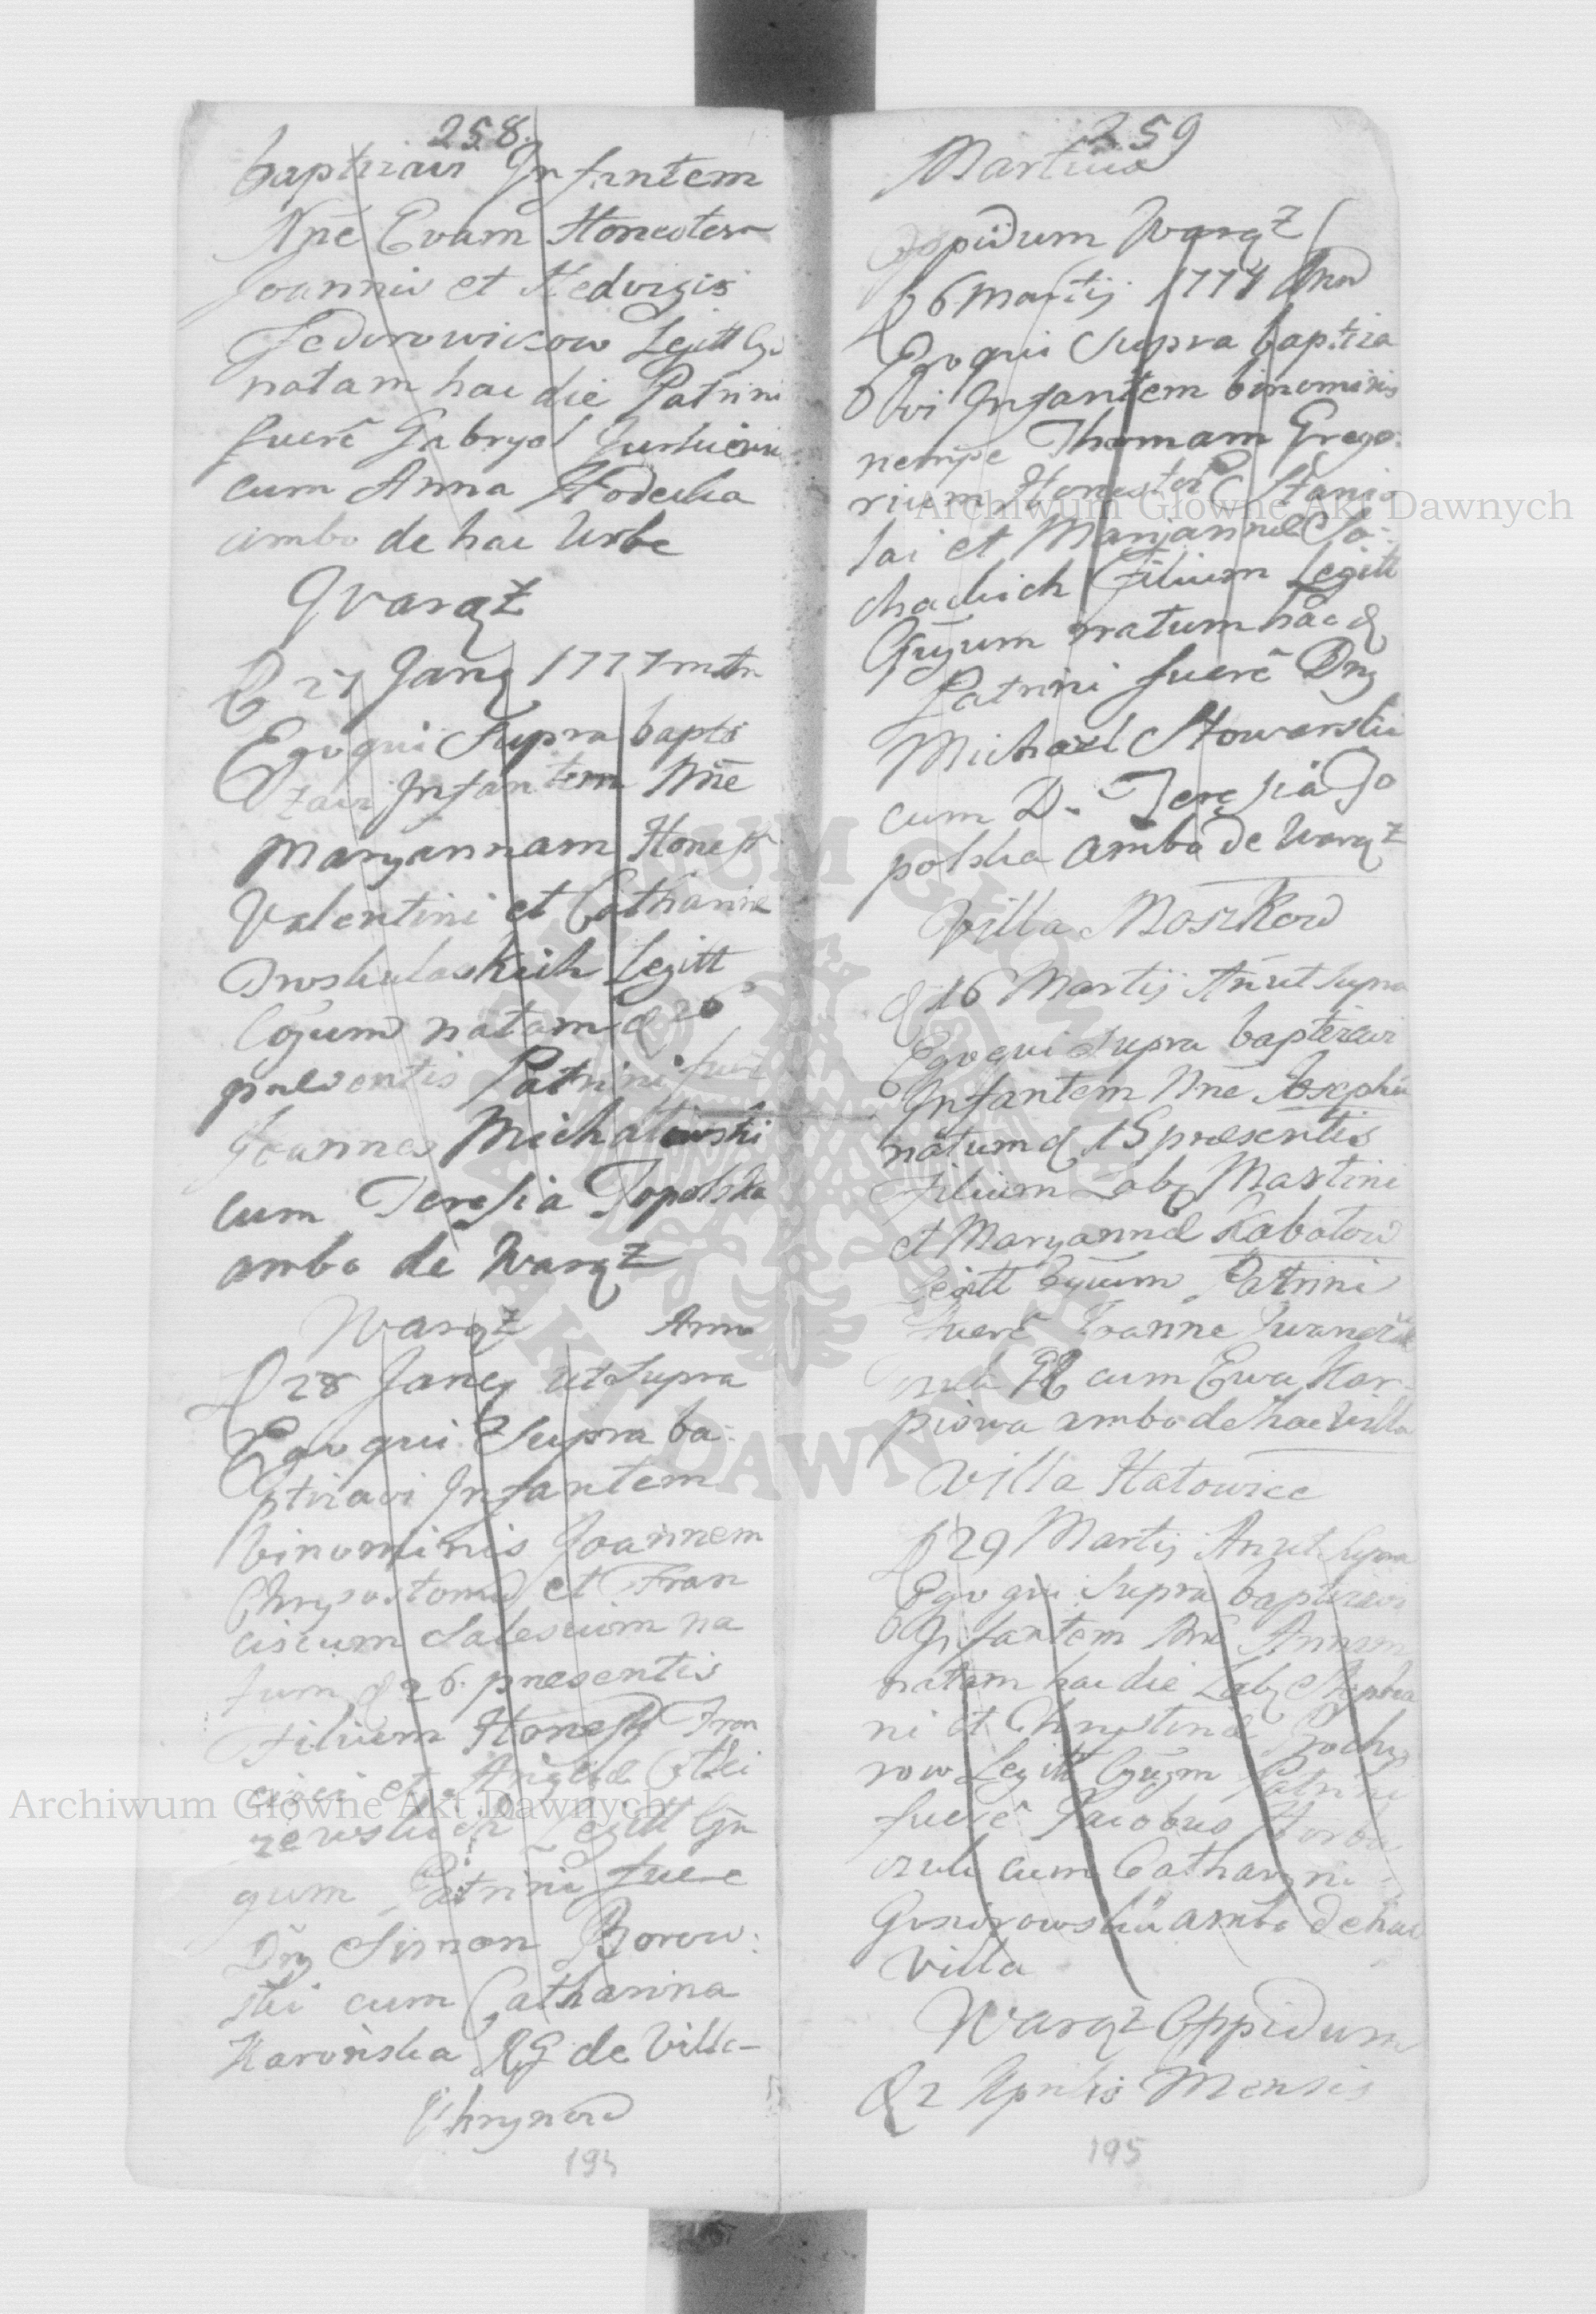 258.
baptizavi Infantem
Nne Evam Honestor
Joannis et Hedvigis
Fedorowiczow Legitt
natam hac die Patrini
fuere Gabryel
cum Anna
ambo de hac Urbe
Warąż
D 27 Jany 1777
Ego qui Supra bapti
zavi Infantem Nne
Maryannam Honest
Valentini et Catharinæ
Legitt
Cojum natam d 26
præsentis Patrini fuere
Joannes Michalowski
cum Teresia Topolska
ambo de Warąż
Warąż Anno
D 28 Jany ut Supra
Ego qui Supra ba-
ptizavi Infantem
binominis Joannem
Chrysostomū et Fran
ciscum Salesium na
tum d 26 præsentis
Filium Honest Fran
cisci et
Legitt Cju
gum Patrini fuere
Dnꝫ Simon Borow:
ski cum Catharina
de Villa
Chrynow
194
259
Martius
Oppidum Warąż
D 6 Martij 1777 Ano
Ego qui Supra baptiza
vi Infantem binominis
nempe Thomam Grego:
rium Honestor Stanis
lai et Maryannæ So-
chackich Filium Legitt
Cjugum natum hac d
Patrini fuere Dnꝫ
Michael Skowerski
cum D. Teresia To
polska ambo de Warąż
Villa Moszkow
d 16 Martij An ut Supra
Ego qui Supra baptizavi
Infantem Nne Josephū
natum d 15 præsentis
Filium Labꝫ Martini
et Maryannæ Kabatow
Legitt Cjuum Patrini
fuere Joanne
cum Ewa Kar-
piowa ambo de hac Villa
Villa Hatowice
D 29 Martij An ut Supra
Ego qui Supra baptizavi
Infantem Nne Annam
natam hac die Labꝫ Stepha
ni et Chrystinæ Prochy
row Legitt Cjugm Patrini
fuere Jacobus
cum Catharyna
ambo de hac
Villa
Warąż Oppidum
D 2 Aprilis Mensis
195
Archiwum Główne Akt Dawnych
Archiwum Główne Akt Dawnych
ARCHIWUM GŁÓWNE AKT DAWNYCH